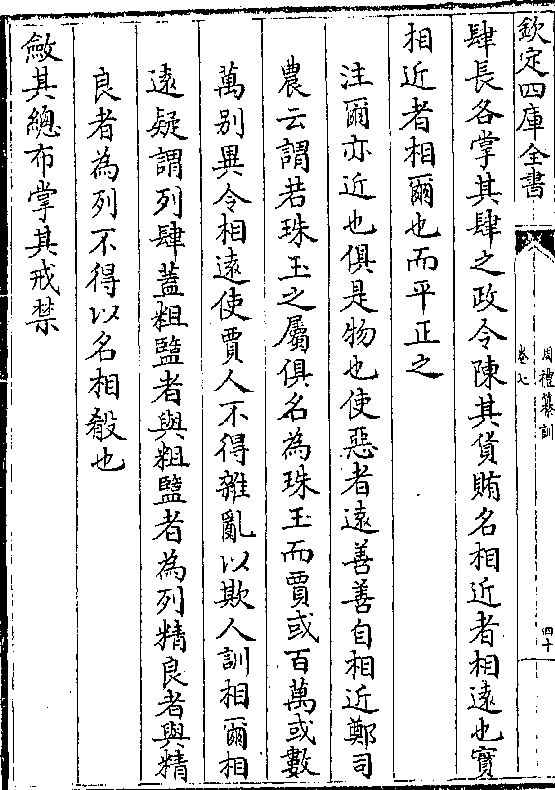 欽定四庫全書
周禮纂訓
卷七
四十
肆長各掌其肆之政令陳其貨賄名相近者相遠也實
相近者相爾也而平正之
注爾亦近也俱是物也使惡者遠善善自相近鄭司
農云謂若珠玉之屬俱名為珠玉而賈或百萬或數
萬别異令相遠使賈人不得雜亂以欺人訓相爾相
遠疑謂列肆蓋粗盬者與粗盬者為列精良者與精
良者為列不得以名相殽也
斂其總布掌其戒禁